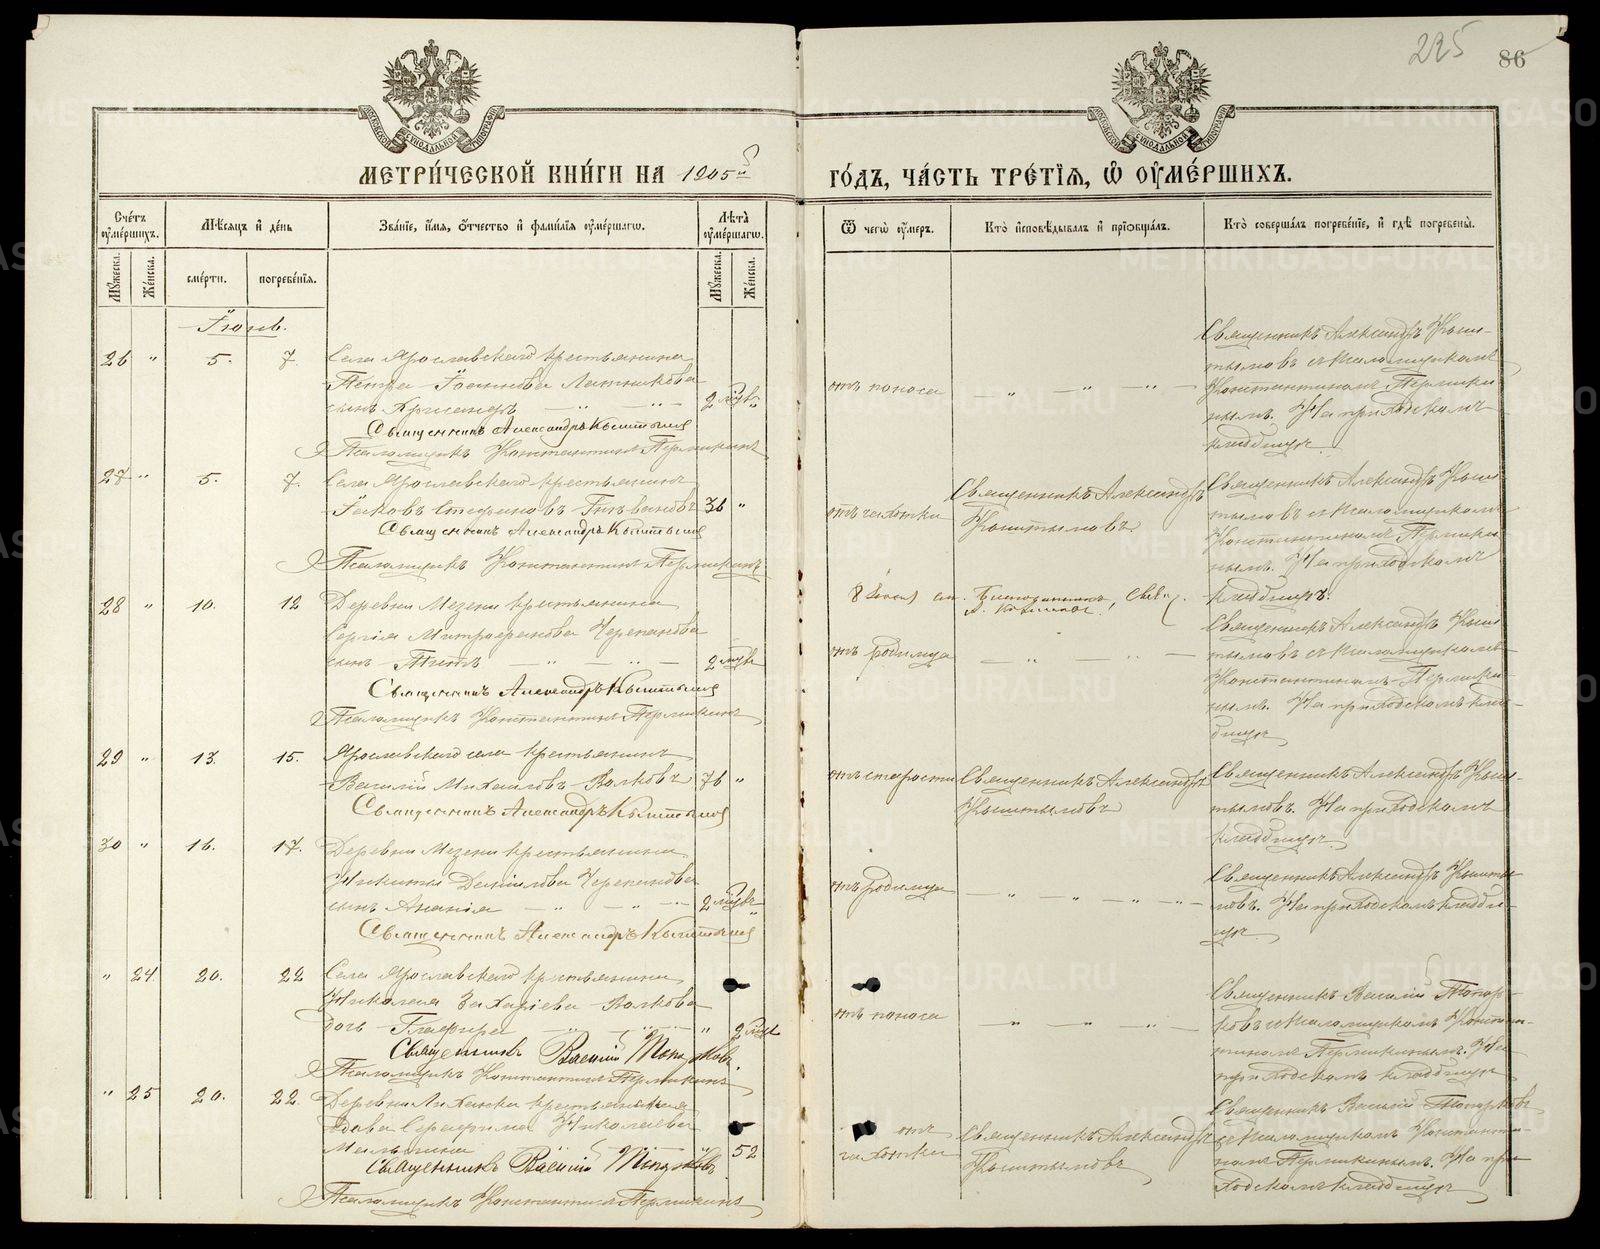 225
86
МЕТРИ́ЧЕСКОЙ КНИ́ГИ НА 1905й
ГО́ДЪ, ЧА́СТЬ ТРЕ́ТІѦ, Ѽ ОУ҆МЕ́РШИХЪ.
Сче́тъ оу҆ме́ршихъ.
Мѣ́сѧцъ и҆ де́нь
Зва́нїе, и҆́мѧ, ѻ҆́тчество и҆ фами́лїѧ оу҆ме́ршагѡ.
Лѣ́та оу҆ме́ршагѡ.
Ѿ чегѡ̀ оу҆́меръ.
Кто̀ и҆сповѣ́дывалъ и҆ прїѡбща́лъ.
Кто̀ соверша́лъ погребе́нїе, и҆ гдѣ̀ погребены̀.
Мꙋ́жеска.
Же́нска.
сме́рти.
погребе́нїѧ.
Мꙋ́жеска.
Же́нска.
Іюнь.
26 " 5. 7. Села Ярославскаго крестьянина
Петра Іоаннова Латникова
сынъ 2 мѣс.
Священникъ Александръ Кыштымов
Псаломщикъ Константинъ Пермикинъ
отъ поноса
Священникъ Александръ Кыш-
тымовъ съ псаломщикомъ
Константиномъ Пермики
нымъ. На приходскомъ
кладбищѣ.
27 " 5. 7. Села Ярославскаго крестьянинъ
Іаковъ Стефановъ 36 "
Священникъ Александръ Кыштымов
Псаломщикъ Константинъ Пермикинъ
отъ чахотки
Священникъ Александръ
Кыштымовъ
Священникъ Александръ Кыш
тымовъ съ псаломщикомъ
Константиномъ Пермики
нымъ. На приходскомъ
кладбищѣ.
28 " 10. 12 Деревни Мезени крестьянина
Сергія Митрофанова Черепанова
сынъ Титъ 2 мѣс.
Священникъ Александръ Кыштымов
Псаломщикъ Константинъ Пермикинъ
Благочинный, Свящ.
отъ родимца
Священникъ Александръ Кыш
тымовъ съ псаломщикомъ
Константиномъ Пермики-
нымъ. На приходскомъ кла-
дбищѣ
29 " 13. 15. Ярославскаго села крестьянинъ
Василій Михаиловъ Волковъ 76 "
Священникъ Александръ Кыштымов
отъ старости
Священникъ Александръ
Кыштымовъ
Священникъ Александръ Кыш-
тымовъ. На приходскомъ
кладбищѣ.
30 " 16. 17. Деревни Мезени крестьянина
Никиты Даніилова Черепанова
сынъ Ананія 2 мѣс.
Священникъ Александръ Кыштымов
отъ родимца
Священникъ Александръ Кышты
мовъ. На приходскомъ кладби-
щѣ.
" 24 20. 22 Села Ярославскаго крестьянина
Николая Захаріева Волкова
дочь Глафира " 2 мѣс.
Священникъ Василій Топорковъ
Псаломщикъ Константинъ Пермикинъ
отъ поноса
Священникъ Василій Топор-
ковъ съ псаломщикомъ Констан-
тиномъ Пермикинымъ. На
приходскомъ кладбищѣ
" 25 20. 22. Деревни крестьянская
вдова Серафима Николаева
" 52
Священникъ Василій Топорковъ
Псаломщикъ Константинъ Пермикинъ
отъ
чахотки
Священникъ Александръ
Кыштымовъ
Священникъ Василій Топорковъ
съ псаломщикомъ Константи-
номъ Пермикинымъ. На при-
ходскомъ кладбищѣ
METRIKI.GASO-URAL.RU